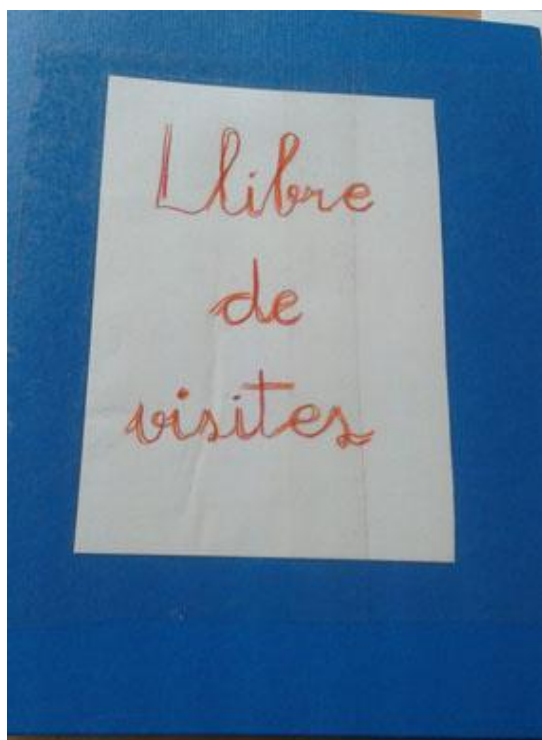 Llibre
de
visites